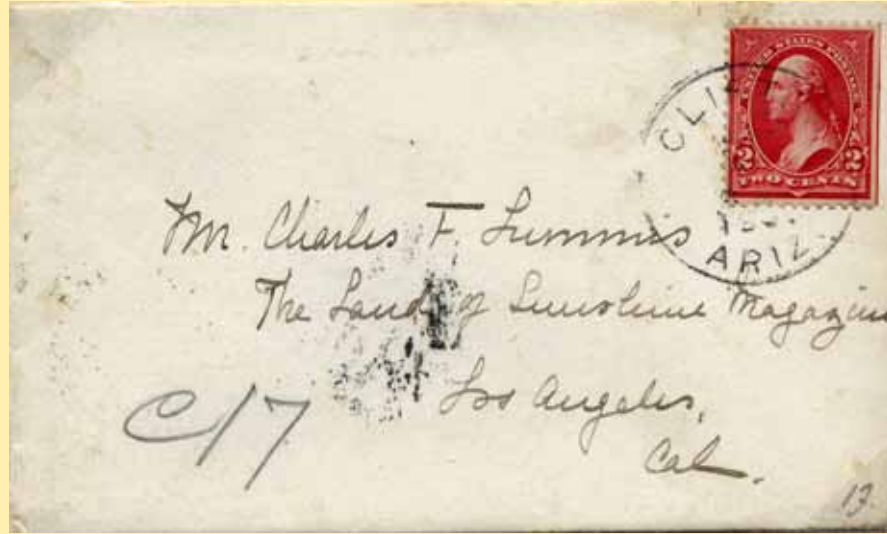 UNITED STATES POSTAGE
2 2
TWO CENTS
CLIF
ARIZ.
Mr. Charles F. Lummis
The Land of Sunshine Magazine
Los Angeles,
Cal.
C/7
13.